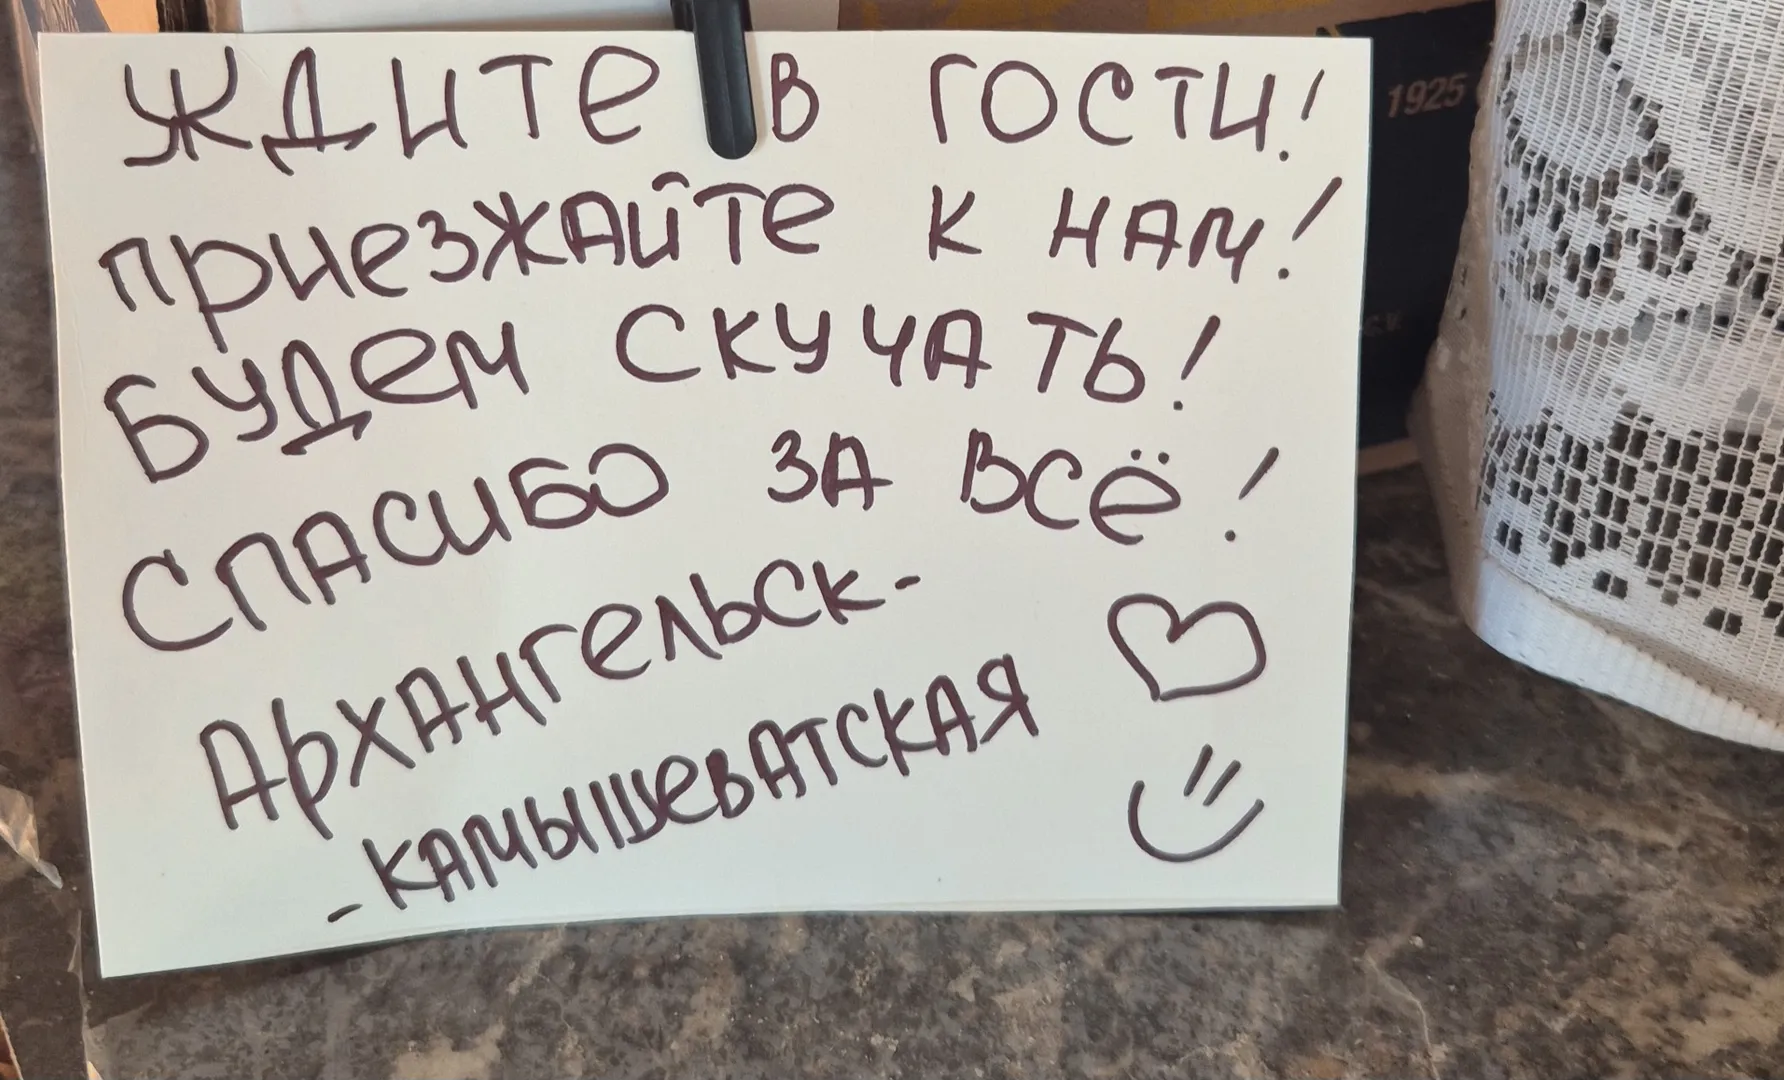 ЖДИТЕ В ГОСТИ!
ПРИЕЗЖАЙТЕ К НАМ!
БУДЕМ СКУЧАТЬ!
СПАСИБО ЗА ВСЁ!
АРХАНГЕЛЬСК-
-КАМЫШЕВАТСКАЯ
1925